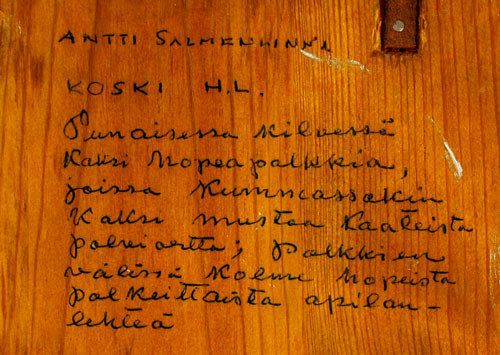 ANTTI SALMENLINNA
KOSKI H.L.
Punaisessa kilvessä
kaksi hopeapalkkia,
joissa kummassakin
kaksi mustaa kaateista
palkki en
välissä kolme hopeista
palkeittaista apilan-
lehteä